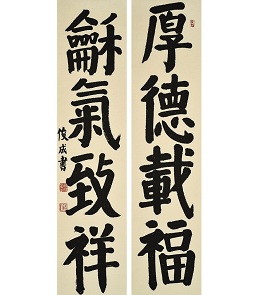 厚德載福
龢氣致祥
俊成書